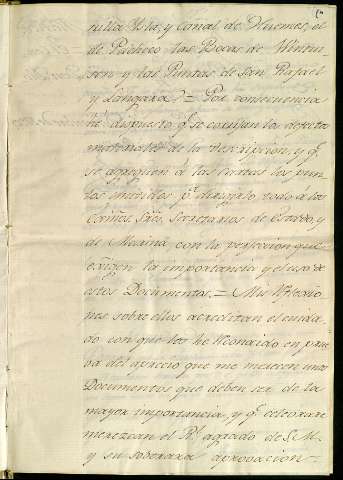 nulla Ysla, y Canal de Huemes, el
de Pacheco, las Bocas de Wintu-
sen y las Puntas de San Rafael
y Langara. = Por consecuencia
he dispuesto q.e se corrijan los defectos
materiales de la descripcion, y q.e
se agreguen á las Cartas los pun-
tos insertos p.a dirigirlo todo a los
Exmôs. Sres. Secretarios de Estado, y
de Marina con la perfeccion que
exigen la importancia y el uso de
estos Documentos. = Mis reflexio-
nes sobre ellos acreditan el cuida-
do con que los he reconocido en prue-
ba del aprecio que me merecen unos
Documentos que deben ser de la
mayor importancia, y q.e celebrare
merezcan el R.l agrado de S. M.
y su soberana aprovacion =